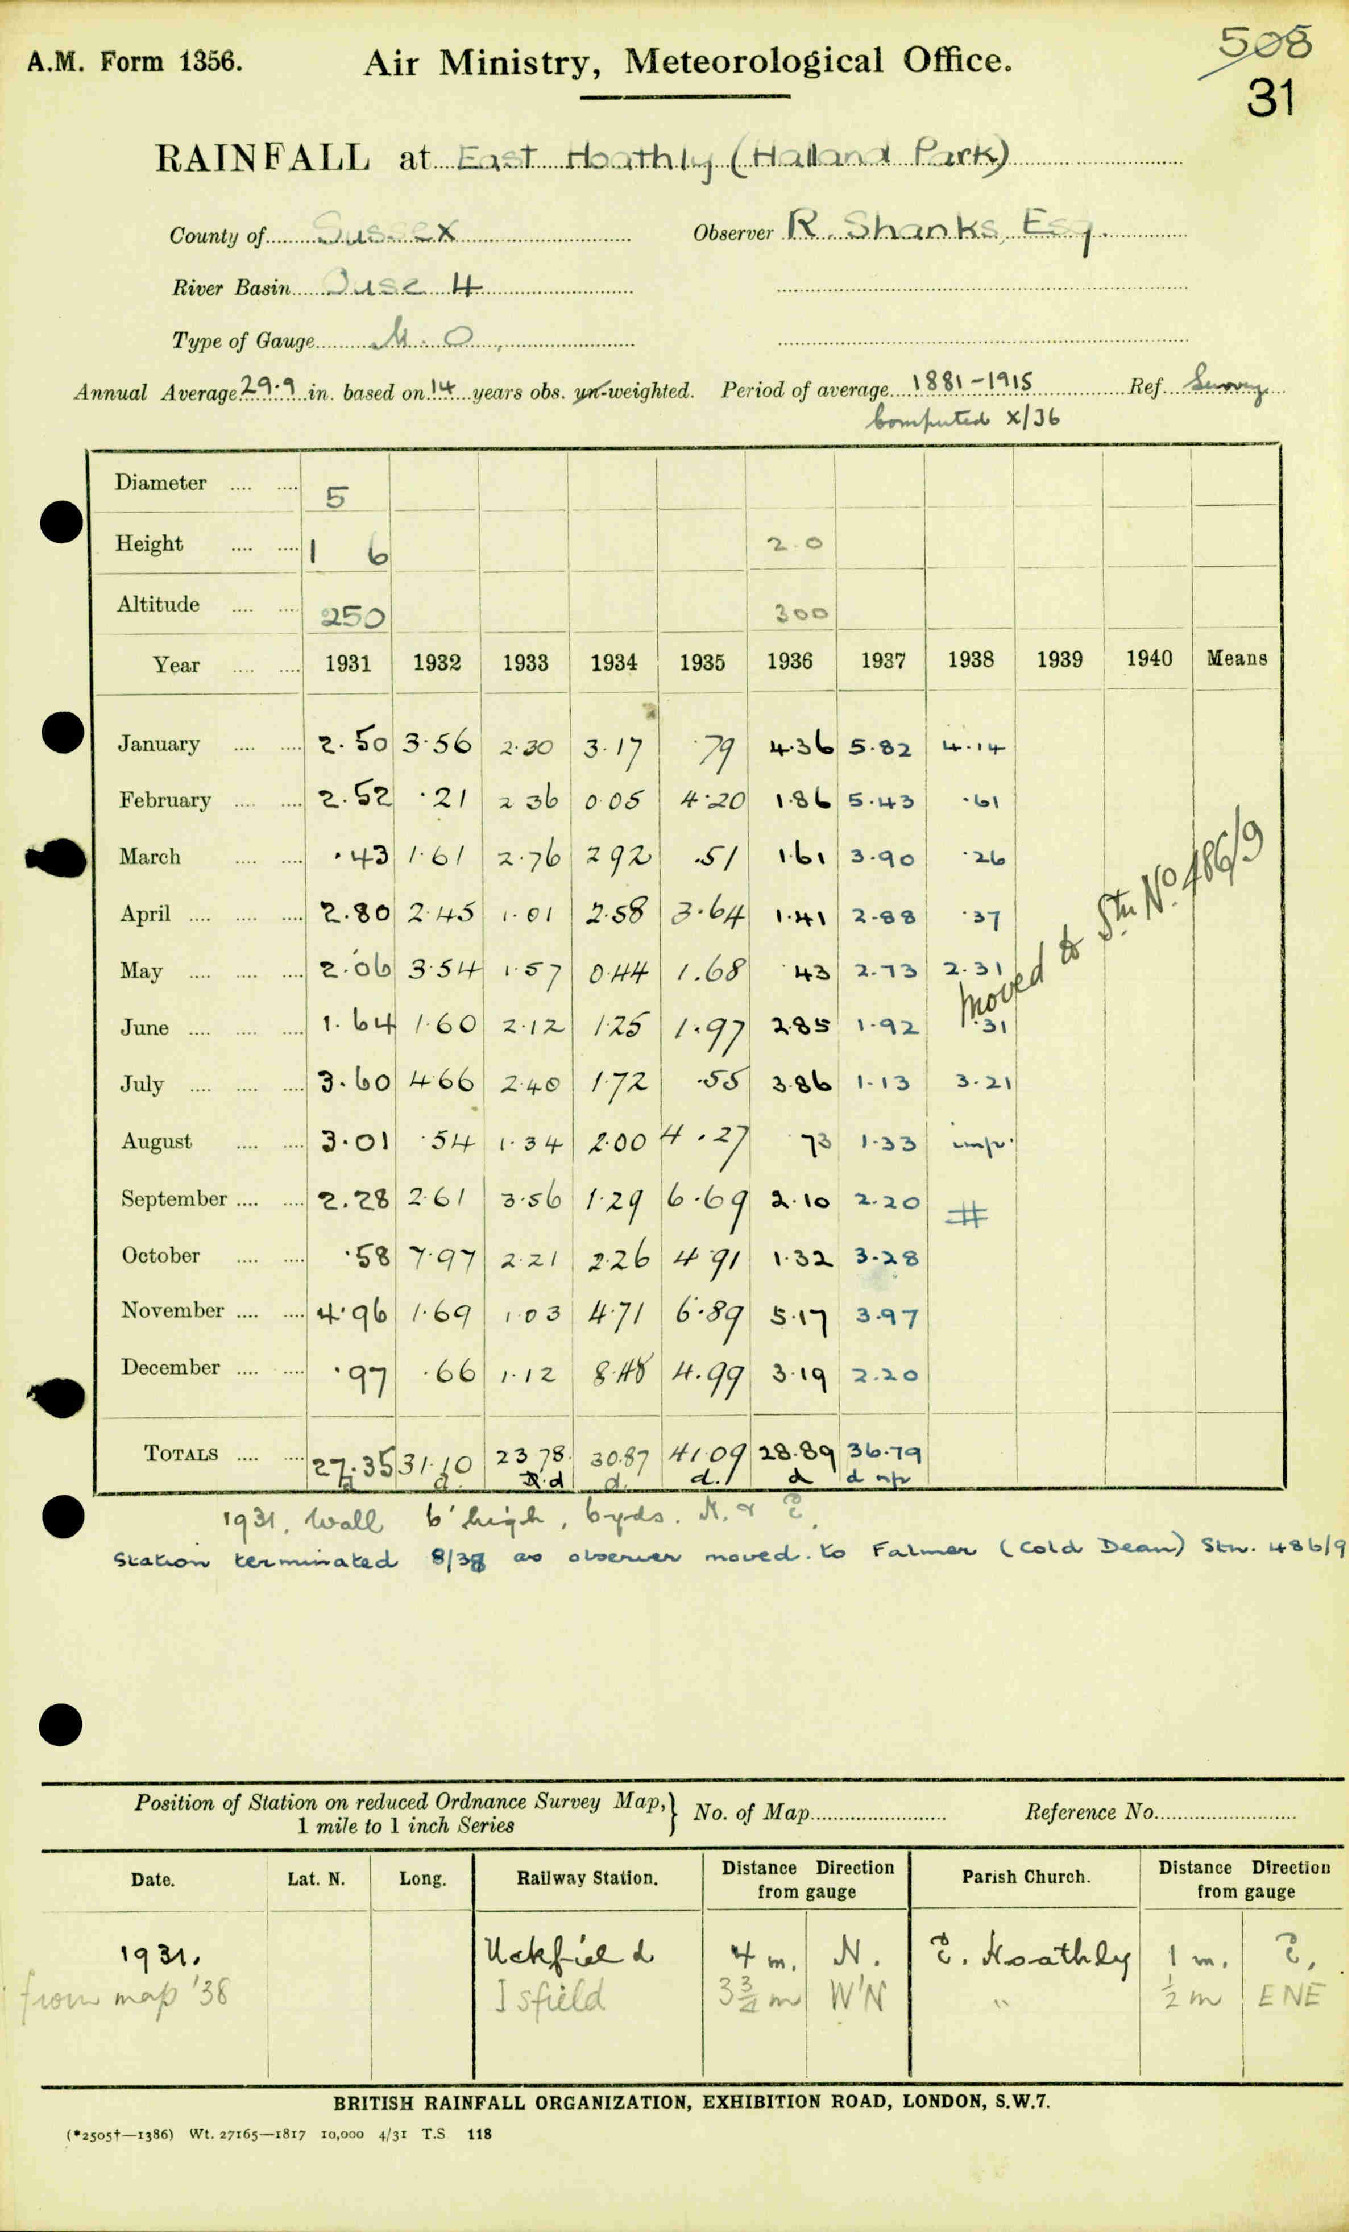 A.M. Form 1356. Air Ministry, Meteorological Office. 508
31
RAINFALL at East Hoathly (Halland Park)
County of Sussex Observer R. Shanks, Esq.
River Basin Ouse 4
Type of Gauge M.O.
Annual Average 29.9 in. based on 14 years obs. un-weighted. Period of average 1881-1915 Ref. Survey
Computed X/36
Diameter 5
Height 1 6 2 0
Altitude 250 300
Year 1931 1932 1933 1934 1935 1936 1937 1938 1939 1940 Means
January 2.50 3.56 2.30 3.17 .79 4.36 5.82 4.14
February 2.52 .21 2 36 0.05 4.20 1.86 5.43 .61
March .43 1.61 2.76 2 92 .51 1.61 3.90 .26
April 2.80 2.45 1.01 2.58 3.64 1.41 2.88 .37
May 2.06 3.54 1.57 0.44 1.68 .43 2.73 2.31
June 1.64 1.60 2.12 1.25 1.97 2.85 1.92 .31
July 3.60 4.66 2.40 1.72 .55 3.86 1.13 3.21
August 3.01 .54 1.34 2.00 4.27 73 1.33 imp.
September 2.28 2.61 3.56 1.29 6.69 2.10 2.20 #
October .58 7.97 2.21 2.26 4.91 1.32 3.28
November 4.96 1.69 1.03 4.71 6.89 5.17 3.97
December .97 .66 1.12 8.48 4.99 3.19 2.20
Moved to Stn No. 486/9
TOTALS 27.35 31.10 23 78 30.87 41.09 28.89 36.79
d d. d d. d. d d
1931. Wall 6' high, 6 yds. N. & E.
Station terminated 8/38 as observer moved to Falmer (Cold Dean) Stn. 486/9
Position of Station on reduced Ordnance Survey Map, } No. of Map Reference No.
1 mile to 1 inch Series
Date. Lat. N. Long. Railway Station. Distance Direction from gauge Parish Church. Distance Direction from gauge
1931. Uckfield 4 m. N. E. Hoathly 1 m. E.
from map '38 Isfield 3¾ m W'N " ½ m ENE
BRITISH RAINFALL ORGANIZATION, EXHIBITION ROAD, LONDON, S.W.7.
(*2505†—1386) Wt. 27165—1817 10,000 4/31 T.S 118